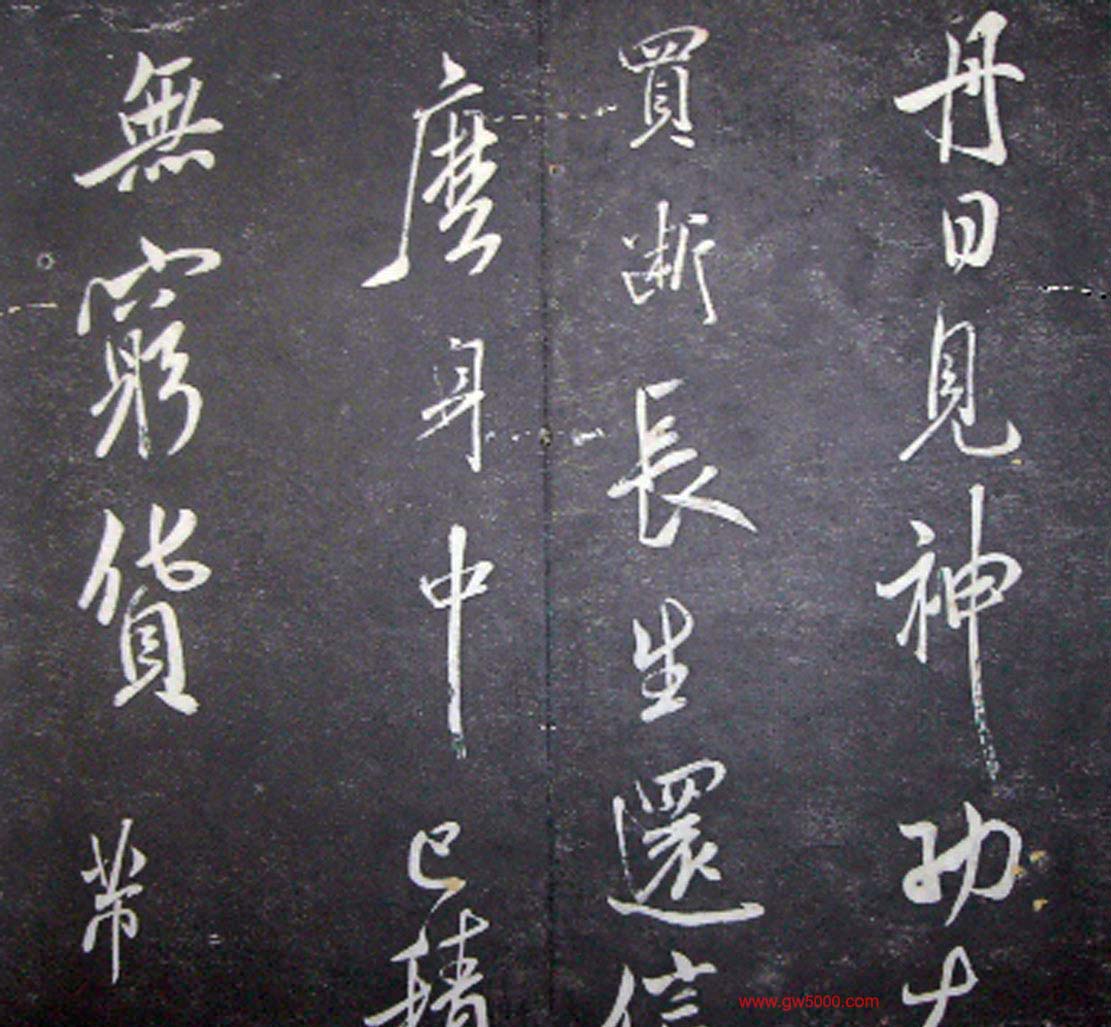 丹日見神功大
買斷長生還信
麼身中已積
無窮貨常
www.gw5000.com